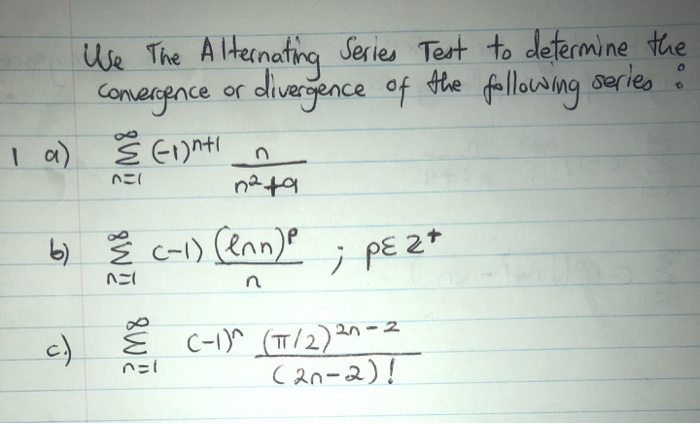 Use The Alternating Series Test to determine the
convergence or divergence of the following series :
1 a) ∞ Σ n=1 (-1)^{n+1} n / (n²+9)
b) ∞ Σ n=1 (-1) (ln n)^p / n ; p ε Z⁺
c.) ∞ Σ n=1 (-1)^n (π/2)^{2n-2} / (2n-2)!